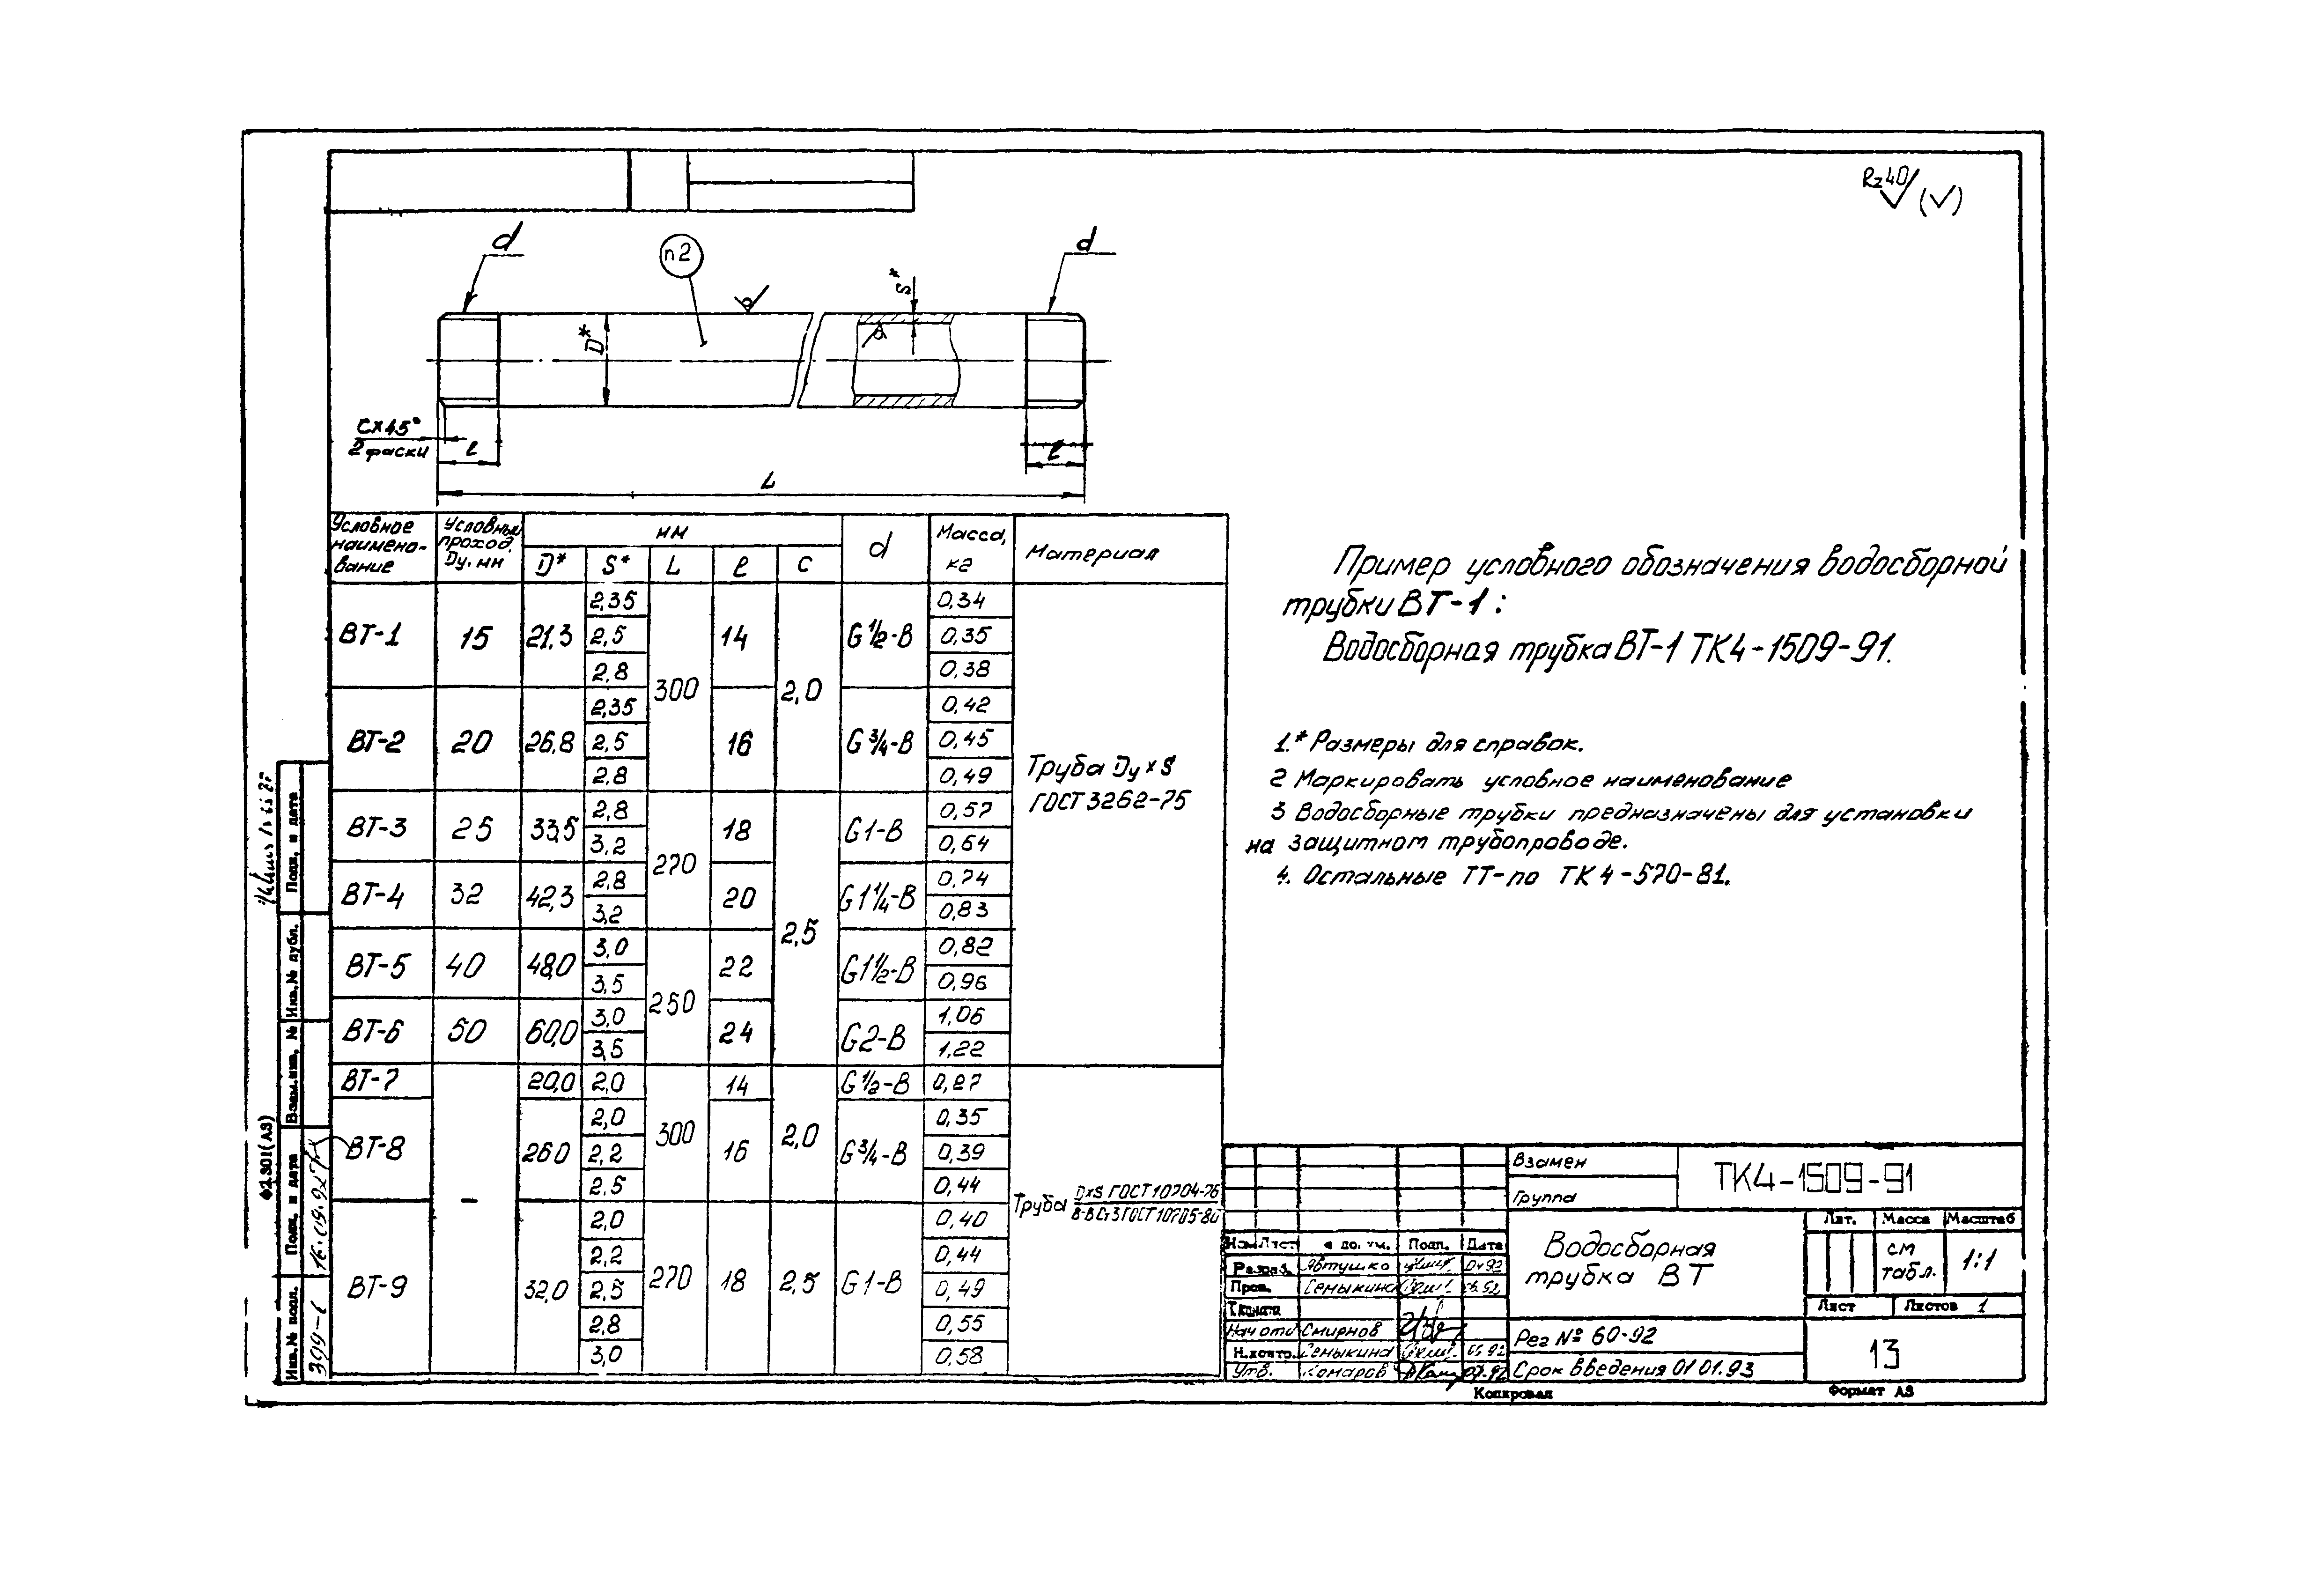 Rz40 (√)
d
п2
d
S*
D*
C×45°
2 фаски
l
l
L
Условное наименование
Условный проход, Dу, мм
мм
d
Масса, кг
Материал
D* S* L l C
ВТ-1 15 21,3 2,35 300 14 2,0 G½-В 0,34
2,5 0,35
2,8 0,38
ВТ-2 20 26,8 2,35 16 G¾-В 0,42
2,5 0,45
2,8 0,49
Труба Dу×S
ГОСТ 3262-75
ВТ-3 25 33,5 2,8 270 18 2,5 G1-В 0,57
3,2 0,64
ВТ-4 32 42,3 2,8 20 G1¼-В 0,74
3,2 0,83
ВТ-5 40 48,0 3,0 250 22 G1½-В 0,82
3,5 0,96
ВТ-6 50 60,0 3,0 24 G2-В 1,06
3,5 1,22
ВТ-7 – 20,0 2,0 300 14 2,0 G½-В 0,27
ВТ-8 26,0 2,0 16 G¾-В 0,35
2,2 0,39
2,5 0,44
Труба D×S ГОСТ 10704-76
В-В Ст3 ГОСТ 10705-80
ВТ-9 32,0 2,0 270 18 2,5 G1-В 0,40
2,2 0,44
2,5 0,49
2,8 0,55
3,0 0,58
Пример условного обозначения водосборной
трубки ВТ-1:
Водосборная трубка ВТ-1 ТК4-1509-91.
1.* Размеры для справок.
2 Маркировать условное наименование
3 Водосборные трубки предназначены для установки
на защитном трубопроводе.
4. Остальные ТТ-по ТК4-570-81.
Взамен
Группа
ТК4-1509-91
Водосборная
трубка ВТ
Лит. Масса Масштаб
см табл. 1:1
Лист Листов 1
Изм Лист № док. Подп. Дата
Разраб. Явтушко 04 92
Пров. Семыкина
Т.контр
Нач отд Смирнов
Н.контр. Семыкина
Утв. Комаров
Рег № 60-92
Срок введения 01 01.93
13
Копировал
Формат А3
Подп. и дата
Инв. № дубл.
Взам. инв. №
Подп. и дата
Инв. № подл.
Ф2.301(А3)